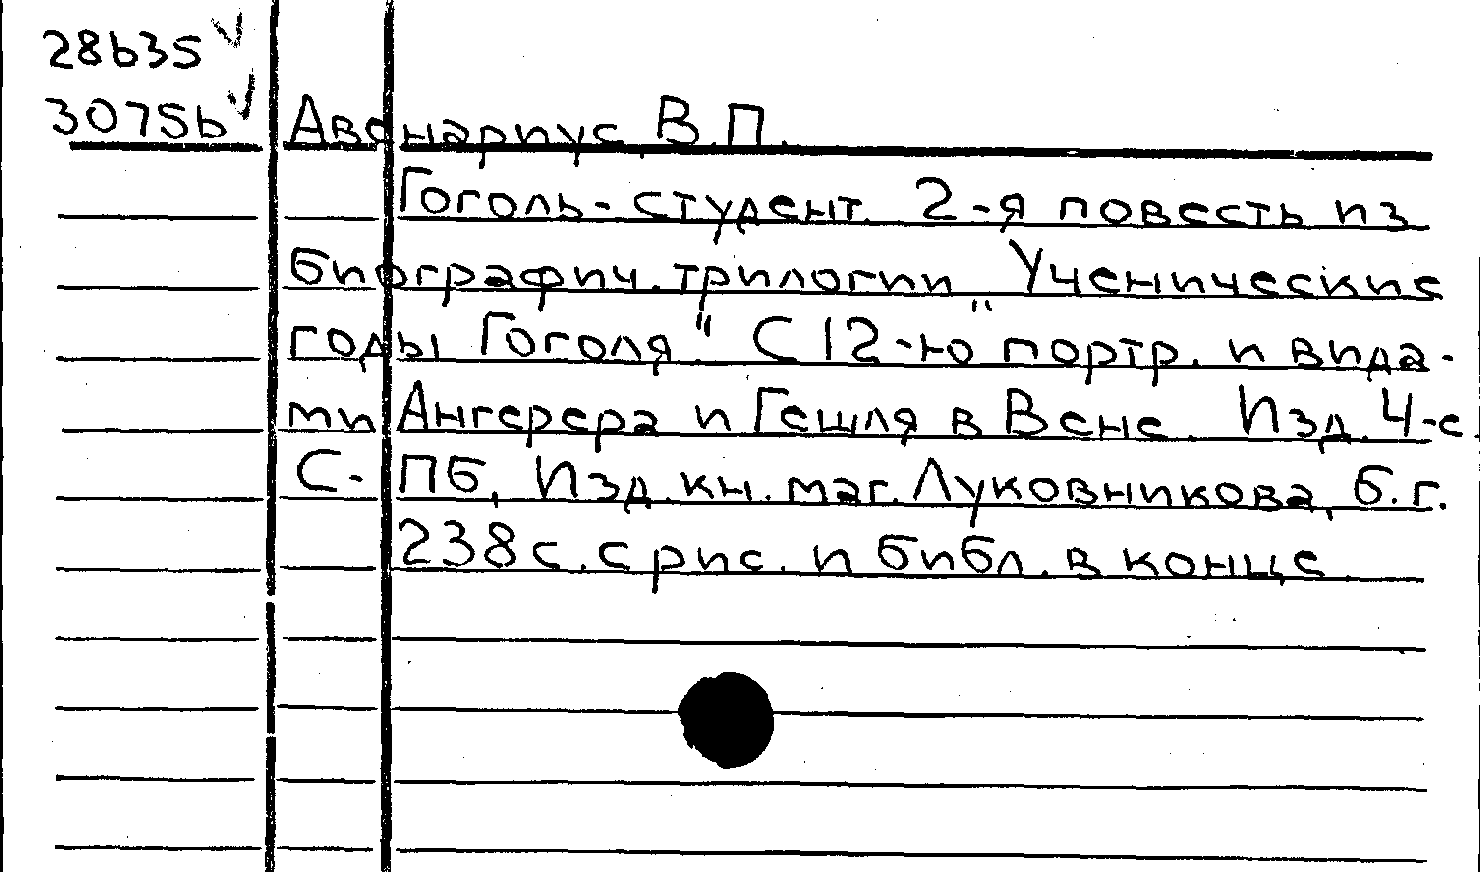 28635
30756 Авенариус, В.П.
Гоголь-студент. 2-я повесть из
биографич. трилогии „Ученические
годы Гоголя" С 12-ю портр. и вида-
ми Ангерера и Гешля в Вене. Изд. 4-е.
С.-ПБ, Изд. кн. маг. Луковникова, б.г.
238 с. с рис. и библ. в конце.